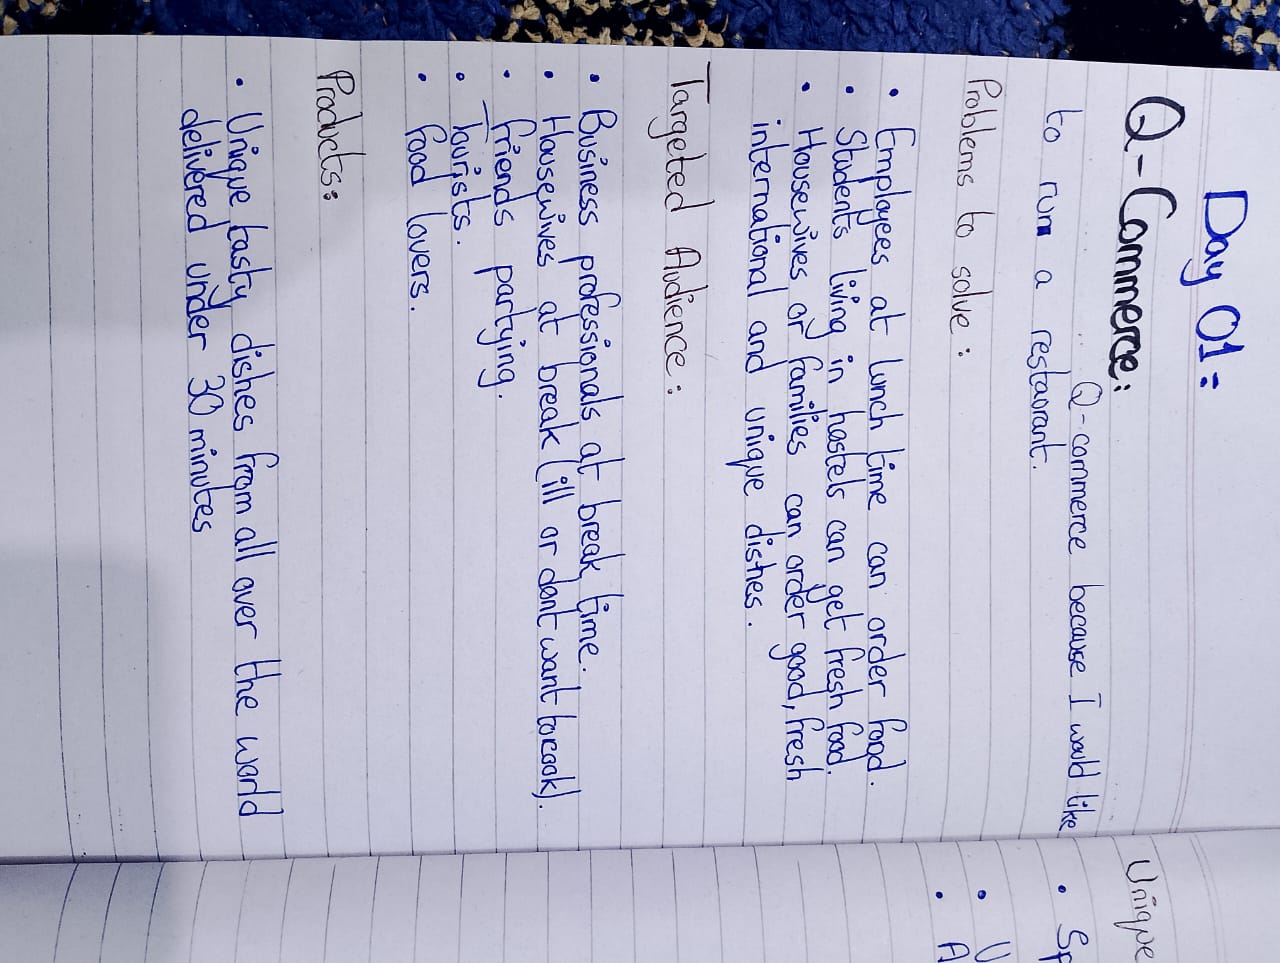 Day 01:
Q-Commerce:
Q-commerce because I would like
to run a restaorant.
Problems to solve:
• Employees at lunch time can order food.
• Students living in hostels can get fresh food.
• Housewives or families can order good, fresh
international and unique dishes.
Targeted Audience:
• Business professionals at break time.
• Housewives at break (ill or dont want to cook).
• friends partying.
• Tourists.
• food lovers.
Products:
• Unique tasty dishes from all over the world
delivered under 30 minutes
Unique